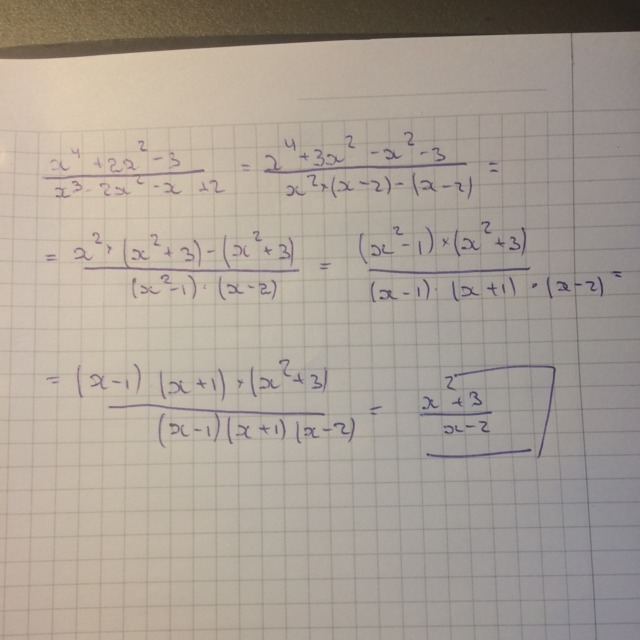 (x⁴ + 2x² - 3)/(x³ - 2x² - x + 2) = (x⁴ + 3x² - x² - 3)/(x² · (x - 2) - (x - 2)) =
= (x² · (x² + 3) - (x² + 3))/((x² - 1) · (x - 2)) = ((x² - 1) · (x² + 3))/((x - 1) · (x + 1) · (x - 2)) =
= ((x - 1) (x + 1) · (x² + 3))/((x - 1) (x + 1) (x - 2)) = (x² + 3)/(x - 2)